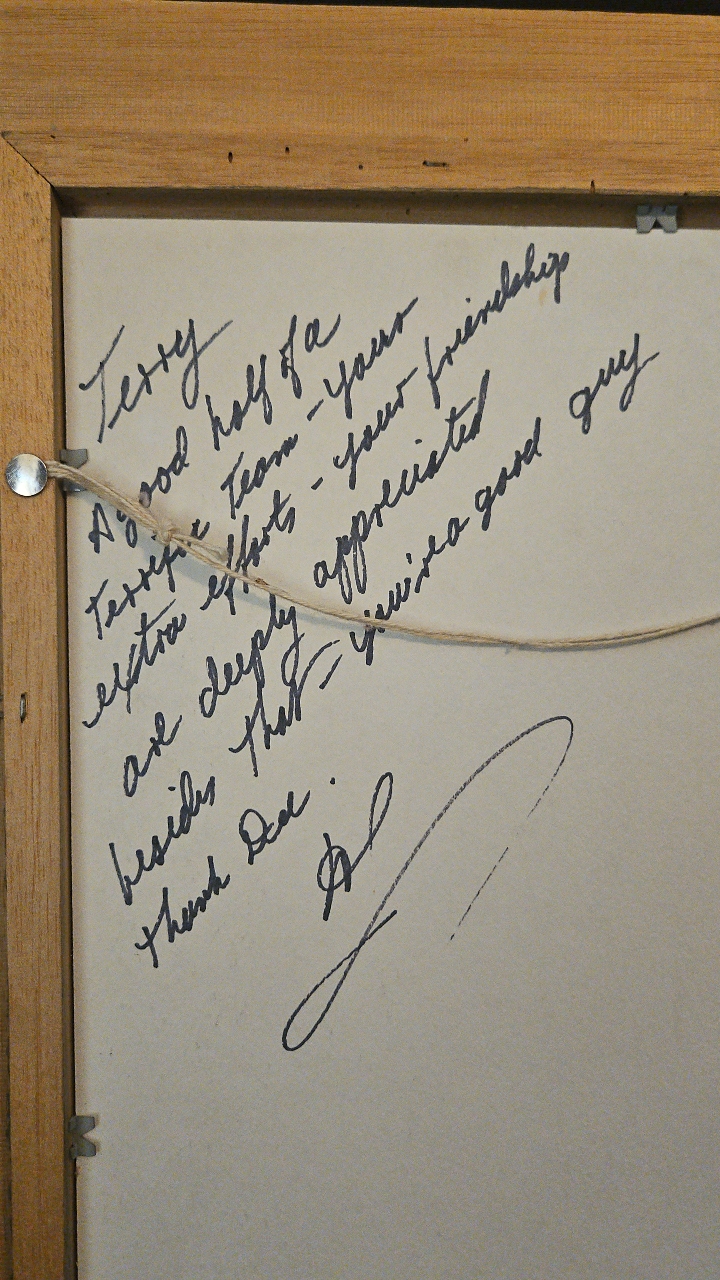 Terry
A good half of a
Terrific Team - your
extra efforts - your friendship
are deeply appreciated
besides that - you're a good guy
thank Dee.
Al